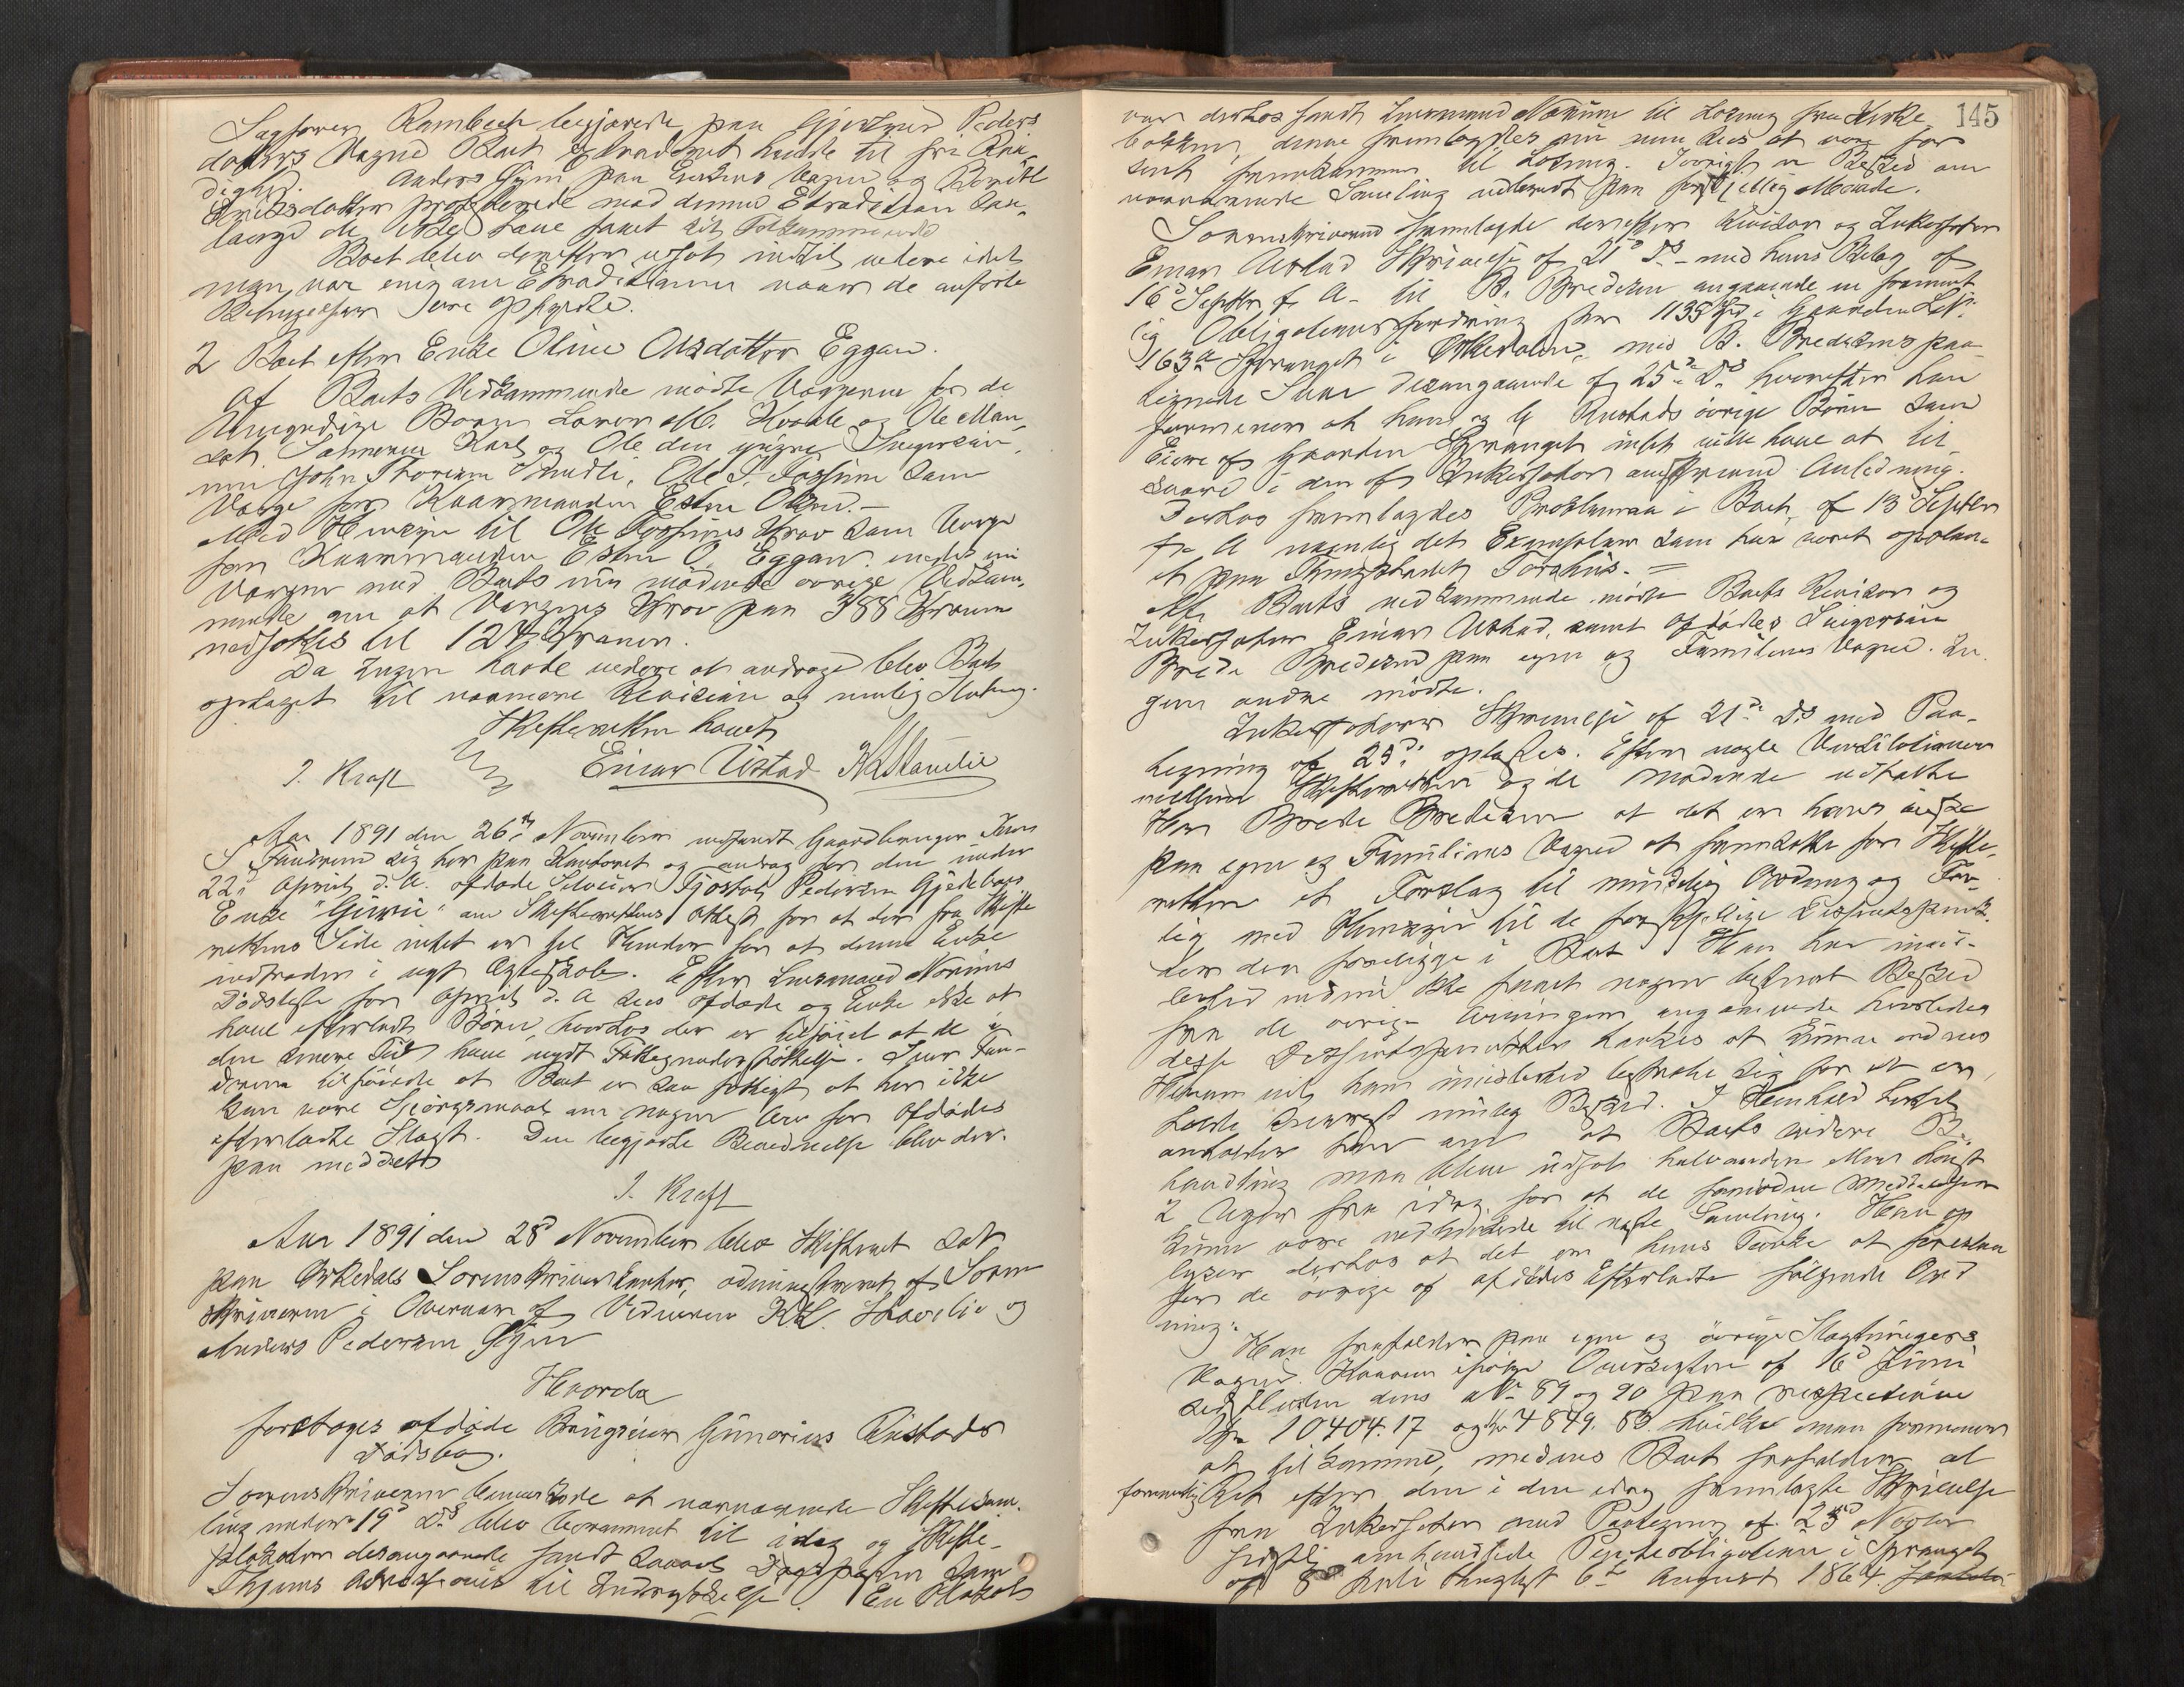 Sagfører Rambech begjærede paa Gjertrud Peders
datters Vegne Boet extraderet hende til fri Raa-
dighed. Anders Gjøn paa Eriksens Vegne og Beret
Eriksdatter protesterede mod denne Extradition saa-
længe de ikke have faaet sit Tilkommende
Boet blev derefter udsat indtil videre idet
man var enig om Extraditionen naar de anførte
Betingelser ere opfyldte.
2 Boet efter Enke Oline Olsdatter Eggan.
Af Boets Vedkommende mødte Værgerne for de
Umyndige Børn Lorns M. Kvaale og Ole Man-
set. Sønnerne Karl og Ole den yngre, Svigersøn-
nen John Thoresen Smedli, Ole S. Fossum som
Værge for Kaarmanden Esten Olsen.-
Med Hensyn til Ole Fossums Krav som Værge
for Kaarmanden Esten O. Eggan enedes nu
Værgen med Boets nu mødende øvrige Vedkom-
mende om at Værgens Krav paa 388 Kroner
nedsattes til 124 Kroner.
Da Ingen havde videre at andrage blev Boet
optaget til nærmere Revision og mulig Slutning.
Skifteretten hævet
J. Kraft Einar Ustad
Aar 1891 den 26de November indfandt Gaardbruger Iver
S. Fandrem sig her paa Kontoret og androg for den under
22de April d. A. afdøde Selveier Fjostol Pedersen Gjedebergs
Enke "Guru" om Skifterettens Attest for at der fra Skifte
rettens Side intet er til Hinder for at denne Enke
indtræder i nyt Ægteskab. Efter Lensmand Norums
Dødsliste for April d. A. sees afdøde og Enke ikke at
have efterladt Børn, hvorhos der er tilføiet at de i
den senere Tid have nydt Fattigunderstøttelse. Iver Fan-
drem tilføiede at Boet er saa fattigt at her ikke
kan være Spørgsmaal om nogen Arv for Afdødes
efterladte Slægt. Den begjærte Bevidnelse blev der-
paa meddelt
J. Kraft
Aar 1891 den 28de November blev Skifteret sat
paa Orkedals Sorenskriverkontor, administreret af Soren
skriveren i Overvær af Vidnerne og
Anders Pedersen Gjøn
Hvorda
foretoges afdøde Brugseier Gunerius Rustads
Dødsbo.
Sorenskriveren bemærkede at nærværende Skiftesam-
ling under 19de ds. blev berammet til idag og Skifte-
plakaten desangaaende sendt saavel Dagsposten som
Thjems Adresseavis til Indrykkelse. En Plakat
145
var derhos sendt Lensmand Norum til Læsning fra Kirke
bakken, denne fremlagdes nu men sees at være for
sent fremkommen til Læsning. Iøvrigt er Besked om
nærværende Samling udsendt paa forskjellig Maade.
Sorenskriveren fremlagde derefter Revisor og Inkassator
Einar Ustad Skrivelse af 21de ds. - med hans Bilag af
16de Septbr f. A. til B. Bredesen angaaende en forment-
lig Obligationsfordring stor 1135 Spd i Gaarden LNo
163a Sprauget i Orkedalen, med B. Bredesens paa
tegnede Svar desangaaende af 25de ds. hvorefter han
formener at han og G Rustads øvrige Børn som
Eiere af Gaarden Sprauget intet ville have at til
svare i den af Inkassator anførte Anledning.
Derhos fremlagdes Proklamaa i Boet af 13de Septbr
f. A nemlig det Exemplar som har været opslaa-
et paa Thingstedet Torshus. =
Af Boets vedkommende mødte Boets Revisor og
Inkassator Einar Ustad, samt Afdødes Svigersøn
Brede Bredesen paa egne og Familiens Vegne. In
gen andre mødte.
Inkassators Skrivelse af 21de ds. med Paa-
tegning af 25de oplæstes. Efter nogle Ventilationer
mellem Skifteretten og de Mødende udtalte
Herr Brede Bredesen at det er hans Ønske
paa egne og Familiens Vegne at fremsætte for Skifte-
retten et Forslag til mindelig Ordning og For-
lig med Hensyn til de forskjellige Disputspunk-
ter der foreligge i Boet. Han har imid-
lertid endnu ikke faaet nogen bestemt Besked
fra de øvrige Arvinger angaaende hvorledes
disse Disputspunkter tænkes at kunne ordnes
Herom vil han imidlertid bestræbe sig for at er
holde snarest mulig Besked. I Henhold hertil
anholder han om at Boets videre Be-
handling maa blive udsat halvanden eller høist
2 Uger fra idag for at de fornødne Meddelelser
kunne være vedkommende til næste Samling. Han op
lyser derhos at det er hans Tanke at foreslaa
for de øvrige af afdødes Efterladte følgende Ord
ning:
Han frafalder paa egne og øvrige Slægtningers
Vegne Kravene ifølge Oversigten af 16de Juni
sidstleden dens No 89 og 90 paa respective
Kr. 10404.17 og Kr 4849.83 hvilke man formener
at tilkomme, medens Boet frafalder al
formentlig Ret efter den i den idag fremlagte Skrivelse
fra Inkassator med Paategning af 25de Novbr
sidstl. omhandlede Panteobligation i Sprauget
af 8de Juli thinglyst 6te August 1864.